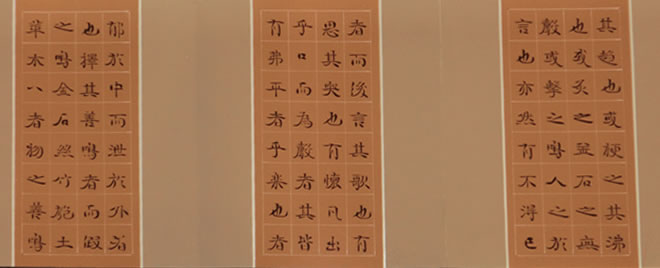 其趨也或梗之其沸
也或炙之金石之無
聲或擊之鳴人之於
言也亦然有不得已
者而後言其歌也有
思其哭也有懷凡出
乎口而為聲者其皆
有弗平者乎樂也者
郁於中而泄於外者
也擇其善鳴者而假
之鳴金石絲竹匏土
革木八者物之善鳴